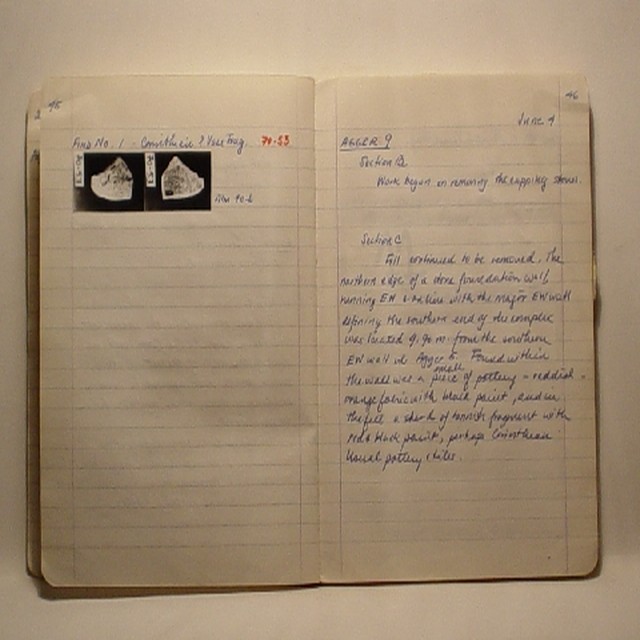 45
Find No. 1 - Corinthian ? Vase Frag. 70-53
46
June 9
AGGER 9
Section B
Work began on removing the capping stones.
Section C
Fill continued to be removed. The
northern edge of a stone foundation wall,
running EW & in line with the major EW wall
defining the southern end of the complex
was located 9.90 m. from the southern
EW wall of Agger 5. Found within
the wall was a small piece of pottery - reddish -
orange fabric with black paint, and in
the fill a sherd of fragment with
red & black paint, perhaps Corinthian.
Usual pottery & tiles.